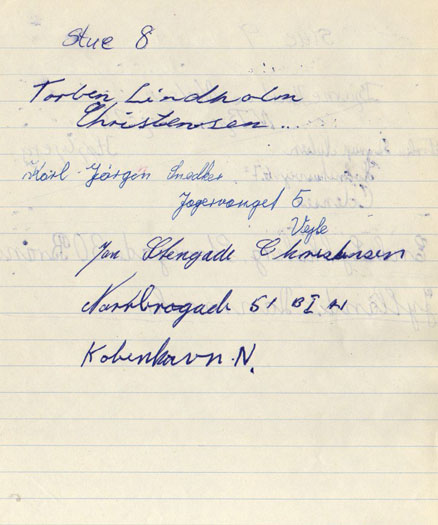 Stue 8
Torben Lindholm
Christensen...
Karl-Jørgen Snedker
Jagervanget 5
Vejle
Jan Stengade Christensen
Nørrbrogade 51 BI H
København.N.